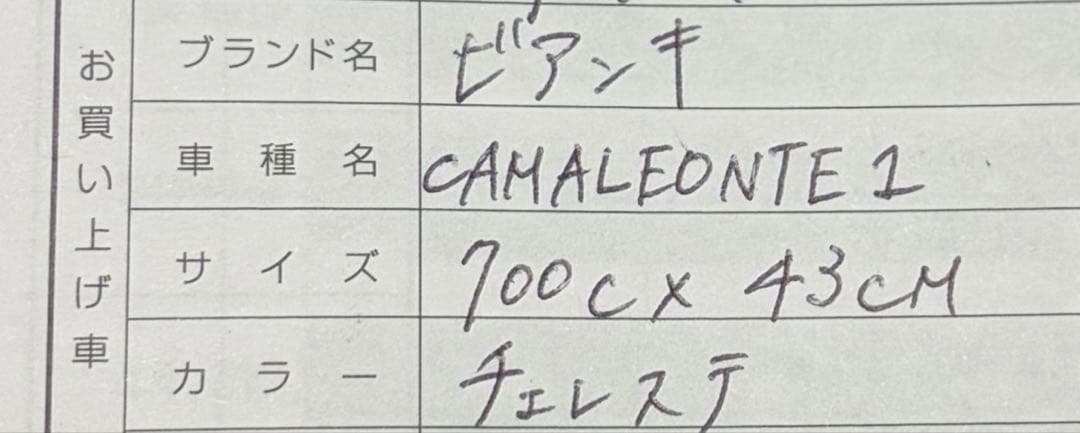 お買い上げ車
ブランド名 ビアンキ
車種名 CAMALEONTE 1
サイズ 700C × 43CM
カラー チェレステ